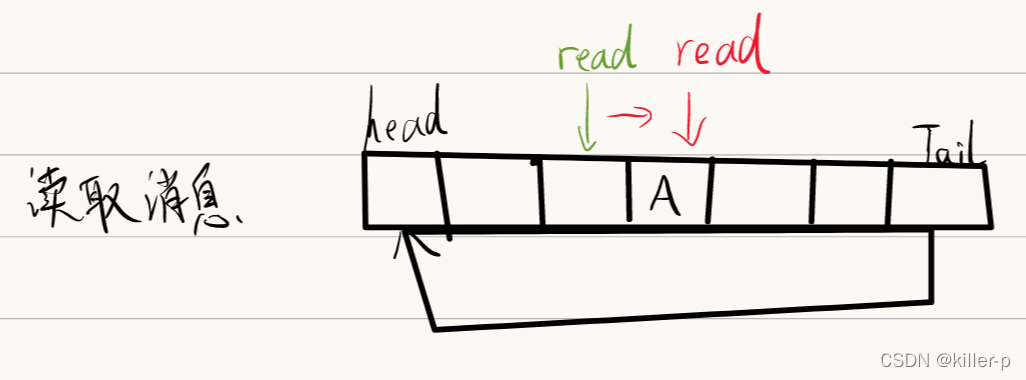 read read
head
Tail
读取消息
A
CSDN @killer-p